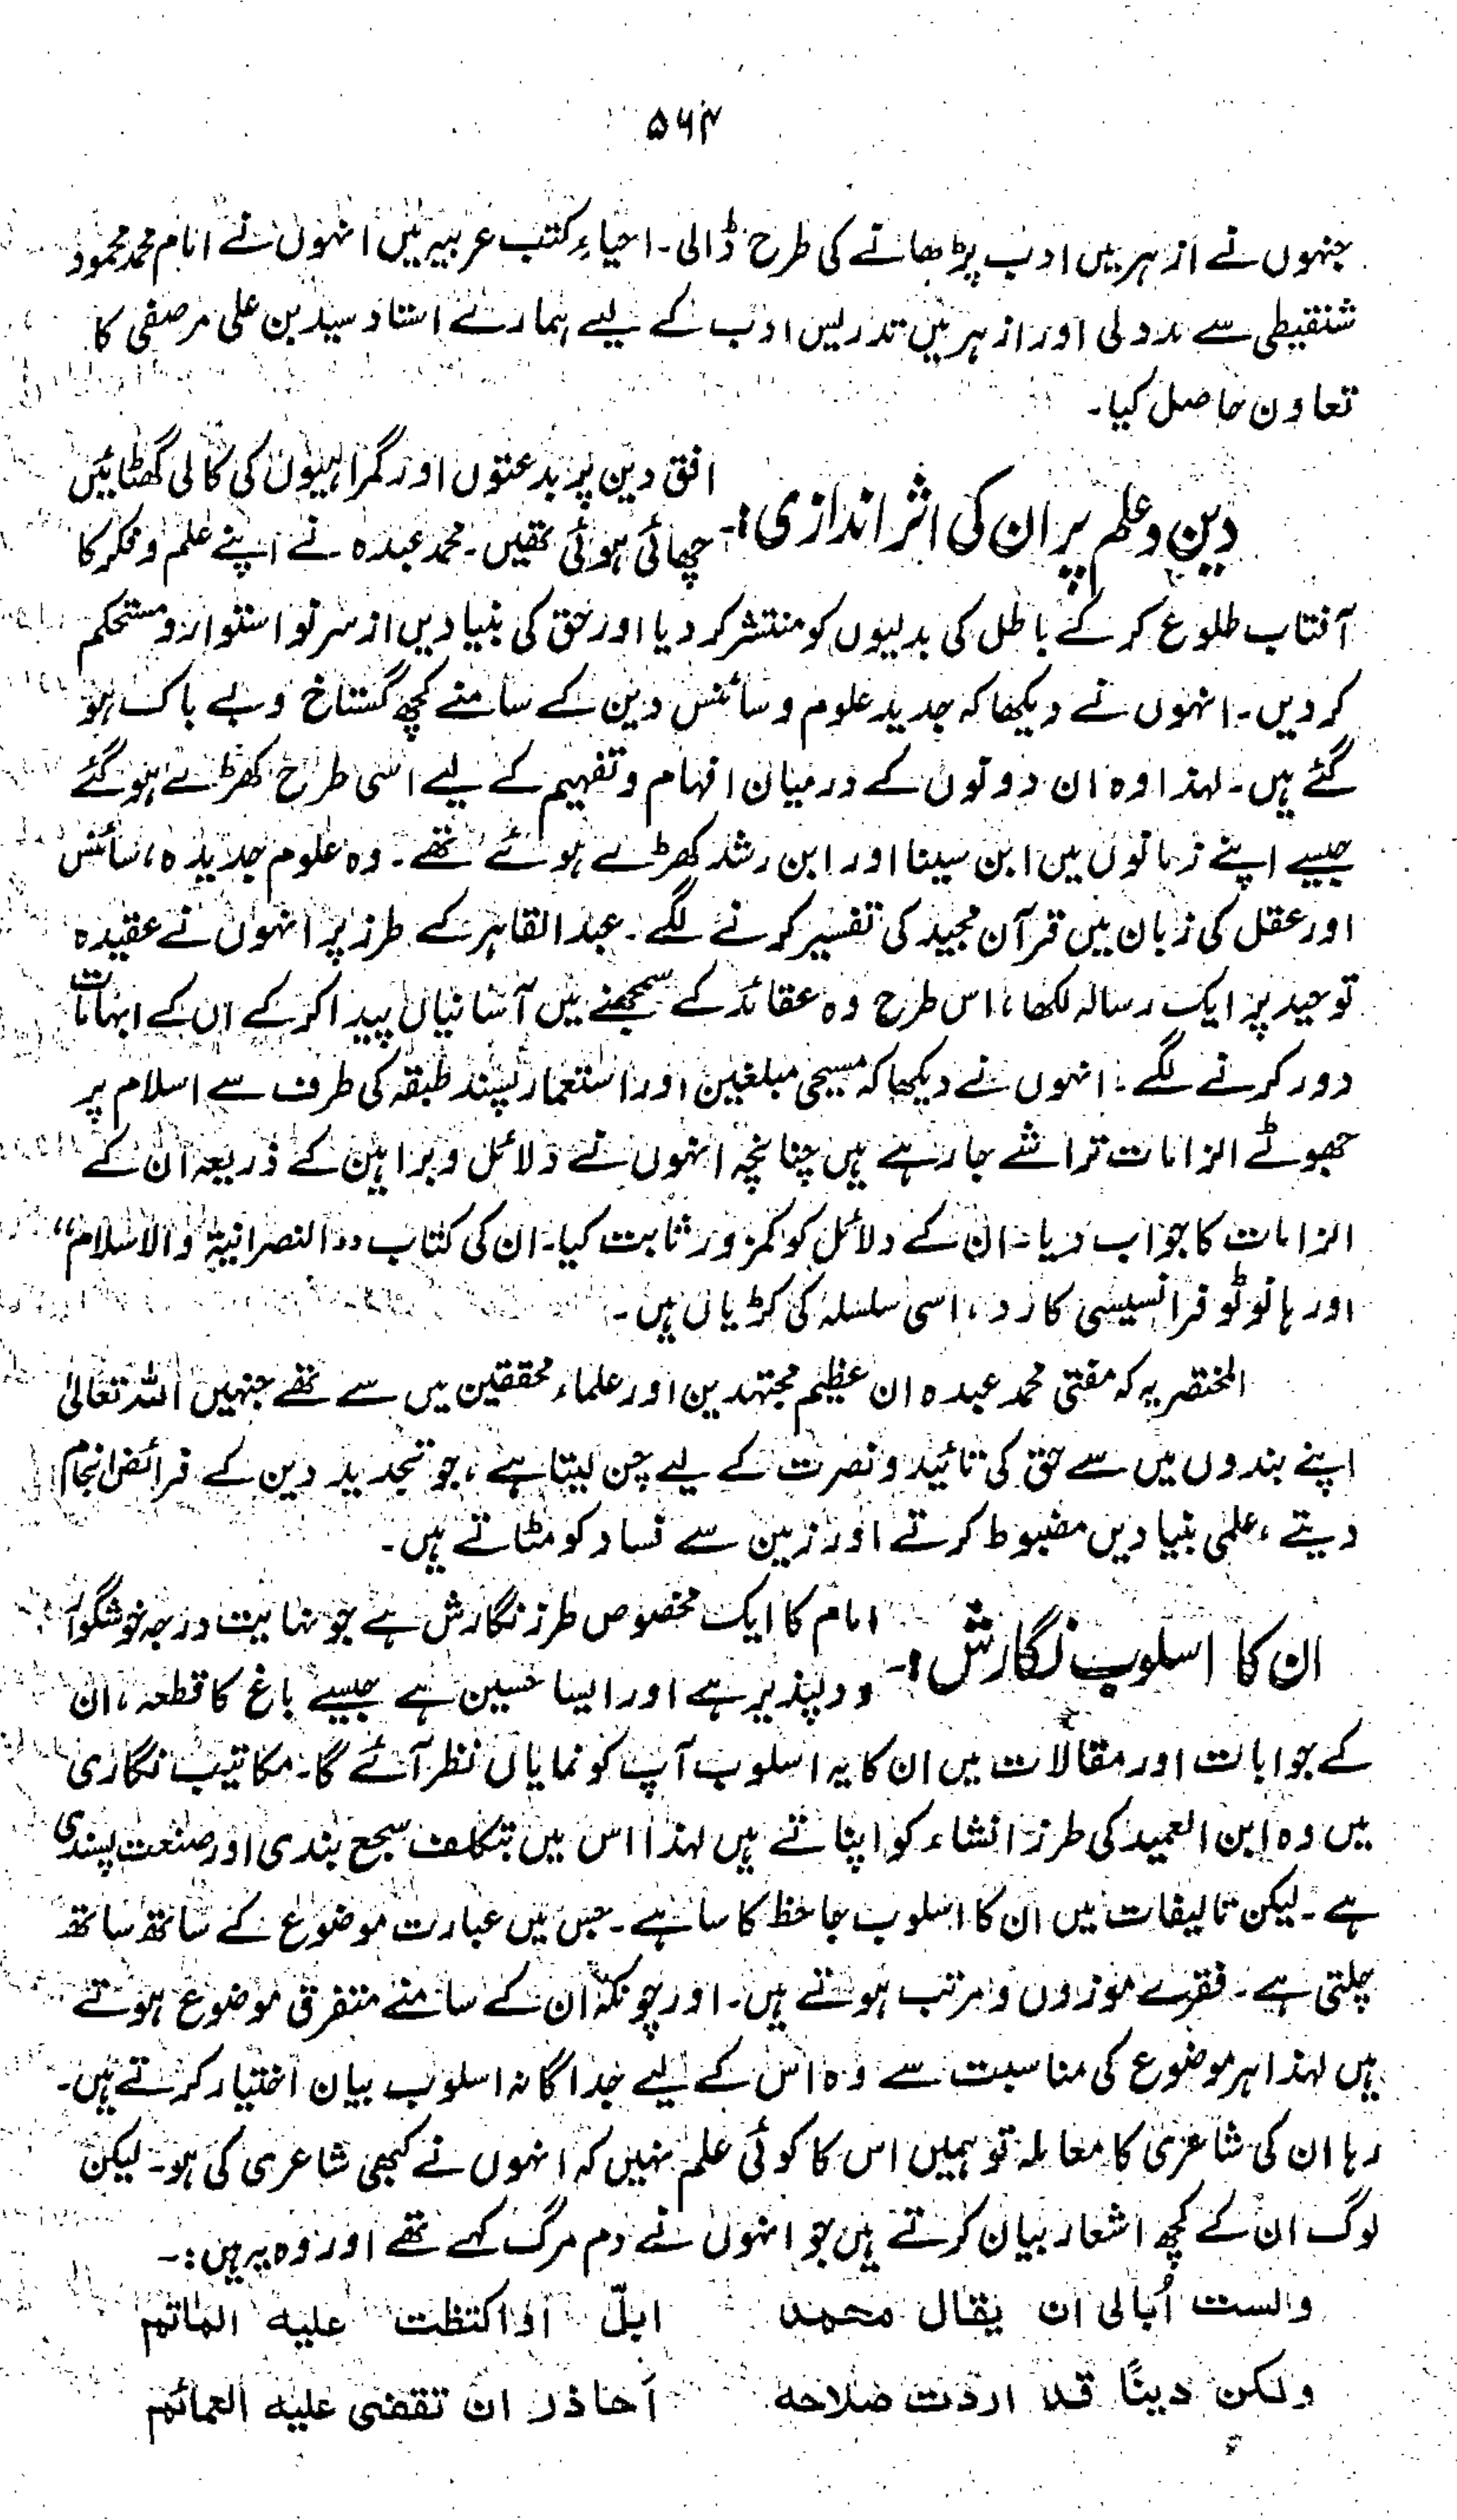 ۵۶۴
جنہوں نے ازہر میں ادب پڑھانے کی طرح ڈالی۔ احیاءِ کتب عربیہ میں انہوں نے امام محمد محمود
شنقیطی سے مدد لی اور ازہر میں تدریس ادب کے لیے ہمارے استاد سید بن علی مرصفی کا
تعاون حاصل کیا۔
دین و علم پر ان کی اثر اندازی:۔ افق دین پر بدعتوں اور گمراہیوں کی کالی گھٹائیں
چھائی ہوئی تھیں۔ محمد عبدہ نے اپنے علم و فکر کا
آفتاب طلوع کر کے باطل کی بدلیوں کو منتشر کر دیا اور حق کی بنیادیں از سر نو استوار و مستحکم
کر دیں۔ انہوں نے دیکھا کہ جدید علوم و سائنس دین کے سامنے کچھ گستاخ و بے باک ہو
گئے ہیں۔ لہذا وہ ان دونوں کے درمیان افہام و تفہیم کے لیے اسی طرح کھڑے ہو گئے
جیسے اپنے زمانوں میں ابن سینا اور ابن رشد کھڑے ہوئے تھے۔ وہ علوم جدیدہ، سائنس
اور عقل کی زبان میں قرآن مجید کی تفسیر کرنے لگے۔ عبدالقاہر کے طرز پر انہوں نے عقیدہ
توحید پر ایک رسالہ لکھا، اس طرح وہ عقائد کے سمجھنے میں آسانیاں پیدا کر کے ان کے ابہامات
دور کرنے لگے۔ انہوں نے دیکھا کہ مسیحی مبلغین اور استعمار پسند طبقہ کی طرف سے اسلام پر
جھوٹے الزامات تراشے جا رہے ہیں چنانچہ انہوں نے دلائل و براہین کے ذریعہ ان کے
الزامات کا جواب دیا۔ ان کے دلائل کو کمزور ثابت کیا۔ ان کی کتاب ’’النصرانیۃ والاسلام‘‘
اور ہانوٹو فرانسیسی کا رد، اسی سلسلہ کی کڑیاں ہیں۔
المختصر یہ کہ مفتی محمد عبدہ ان عظیم مجتہدین اور علماء محققین میں سے تھے جنہیں اللہ تعالیٰ
اپنے بندوں میں سے حق کی تائید و نصرت کے لیے چن لیتا ہے، جو تجدید دین کے فرائض انجام
دیتے، علمی بنیادیں مضبوط کرتے اور زمین سے فساد کو مٹاتے ہیں۔
ان کا اسلوب نگارش:۔ امام کا ایک مخصوص طرز نگارش ہے جو نہایت درجہ خوشگوار
و دلپذیر ہے اور ایسا حسین ہے جیسے باغ کا قطعہ، ان
کے جوابات اور مقالات میں ان کا یہ اسلوب آپ کو نمایاں نظر آئے گا۔ مکاتیب نگاری
میں وہ ابن العمید کی طرز انشاء کو اپناتے ہیں لہذا اس میں بتکلف سجع بندی اور صنعت پسندی
ہے۔ لیکن تالیفات میں ان کا اسلوب جاحظ کا سا ہے۔ جس میں عبارت موضوع کے ساتھ ساتھ
چلتی ہے۔ فقرے موزوں و مرتب ہوتے ہیں۔ اور چونکہ ان کے سامنے متفرق موضوع ہوتے
ہیں لہذا ہر موضوع کی مناسبت سے وہ اس کے لیے جداگانہ اسلوب بیان اختیار کرتے ہیں۔
رہا ان کی شاعری کا معاملہ تو ہمیں اس کا کوئی علم نہیں کہ انہوں نے کبھی شاعری کی ہو۔ لیکن
لوگ ان کے کچھ اشعار بیان کرتے ہیں جو انہوں نے دم مرگ کہے تھے اور وہ یہ ہیں:۔
ولست اُبالی ان یقال محمد ابلّ او اکتظت علیه الماتم
ولکن دینًا قد اردت صلاحه اَحاذر ان تقضی علیه العمائم